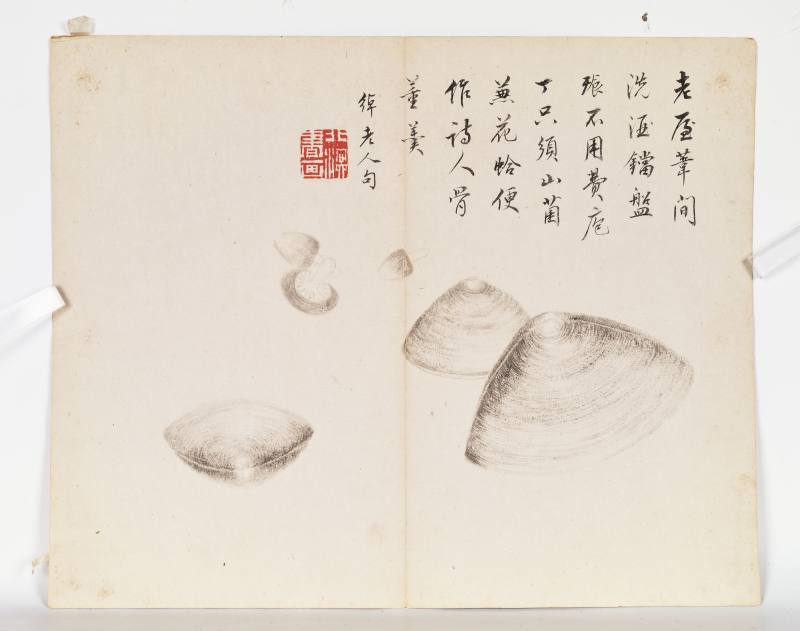 老屋葦間
洗酒鐺盤
張不用費庖
丁只須山菌
兼花蛤便
作詩人骨
董羹
緯老人句